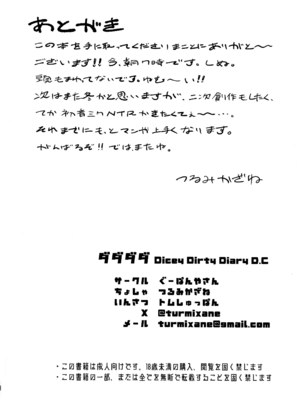 あとがき
この本を手に取ってくださりまことにありがと〜〜
ございます!! 今、朝7時です。しぬ。
頭もまわってないです。ゆも〜い!!
次はまた冬かと思いますが、二次創作もしたく、
てか初音ミクNTRかきたくてぇ〜…。
それまでにもっとマンガ上手くなります。
がんばるぞ!! ではまたね。
つるみかざね
ダダダダ Dicey Dirty Diary D.C
サークル ぐーぱんやさん
ちょしゃ つるみかざね
いんさつ トムしゅっぱん
X @turmixane
メール turmixane@gmail.com
・この書籍は成人向けです。18歳未満の購入、閲覧を固く禁じます
・この書籍の一部、または全てを無断で転載することを固く禁じます